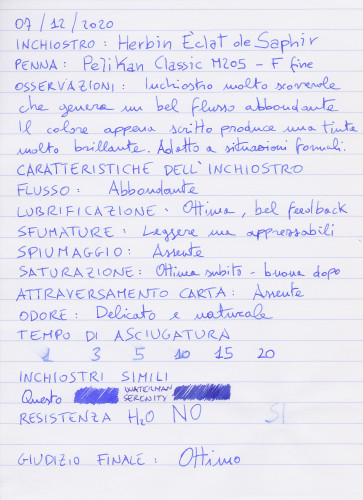 07/12/2020
INCHIOSTRO: Herbin Èclat de Saphir
PENNA: Pelikan Classic M205 - F fine
OSSERVAZIONI: Inchiostro molto scorrevole
che genera un bel flusso abbondante
Il colore appena scritto produce una tinta
molto brillante. Adatto a situazioni formali.
CARATTERISTICHE DELL'INCHIOSTRO
FLUSSO: Abbondante
LUBRIFICAZIONE: Ottima, bel feedback
SFUMATURE: Leggere ma apprezzabili
SPIUMAGGIO: Assente
SATURAZIONE: Ottima subito - buona dopo
ATTRAVERSAMENTO CARTA: Assente
ODORE: Delicato e naturale
TEMPO DI ASCIUGATURA
1 3 5 10 15 20
INCHIOSTRI SIMILI
Questo WATERMAN SERENITY
RESISTENZA H2O NO SI
GIUDIZIO FINALE: Ottimo